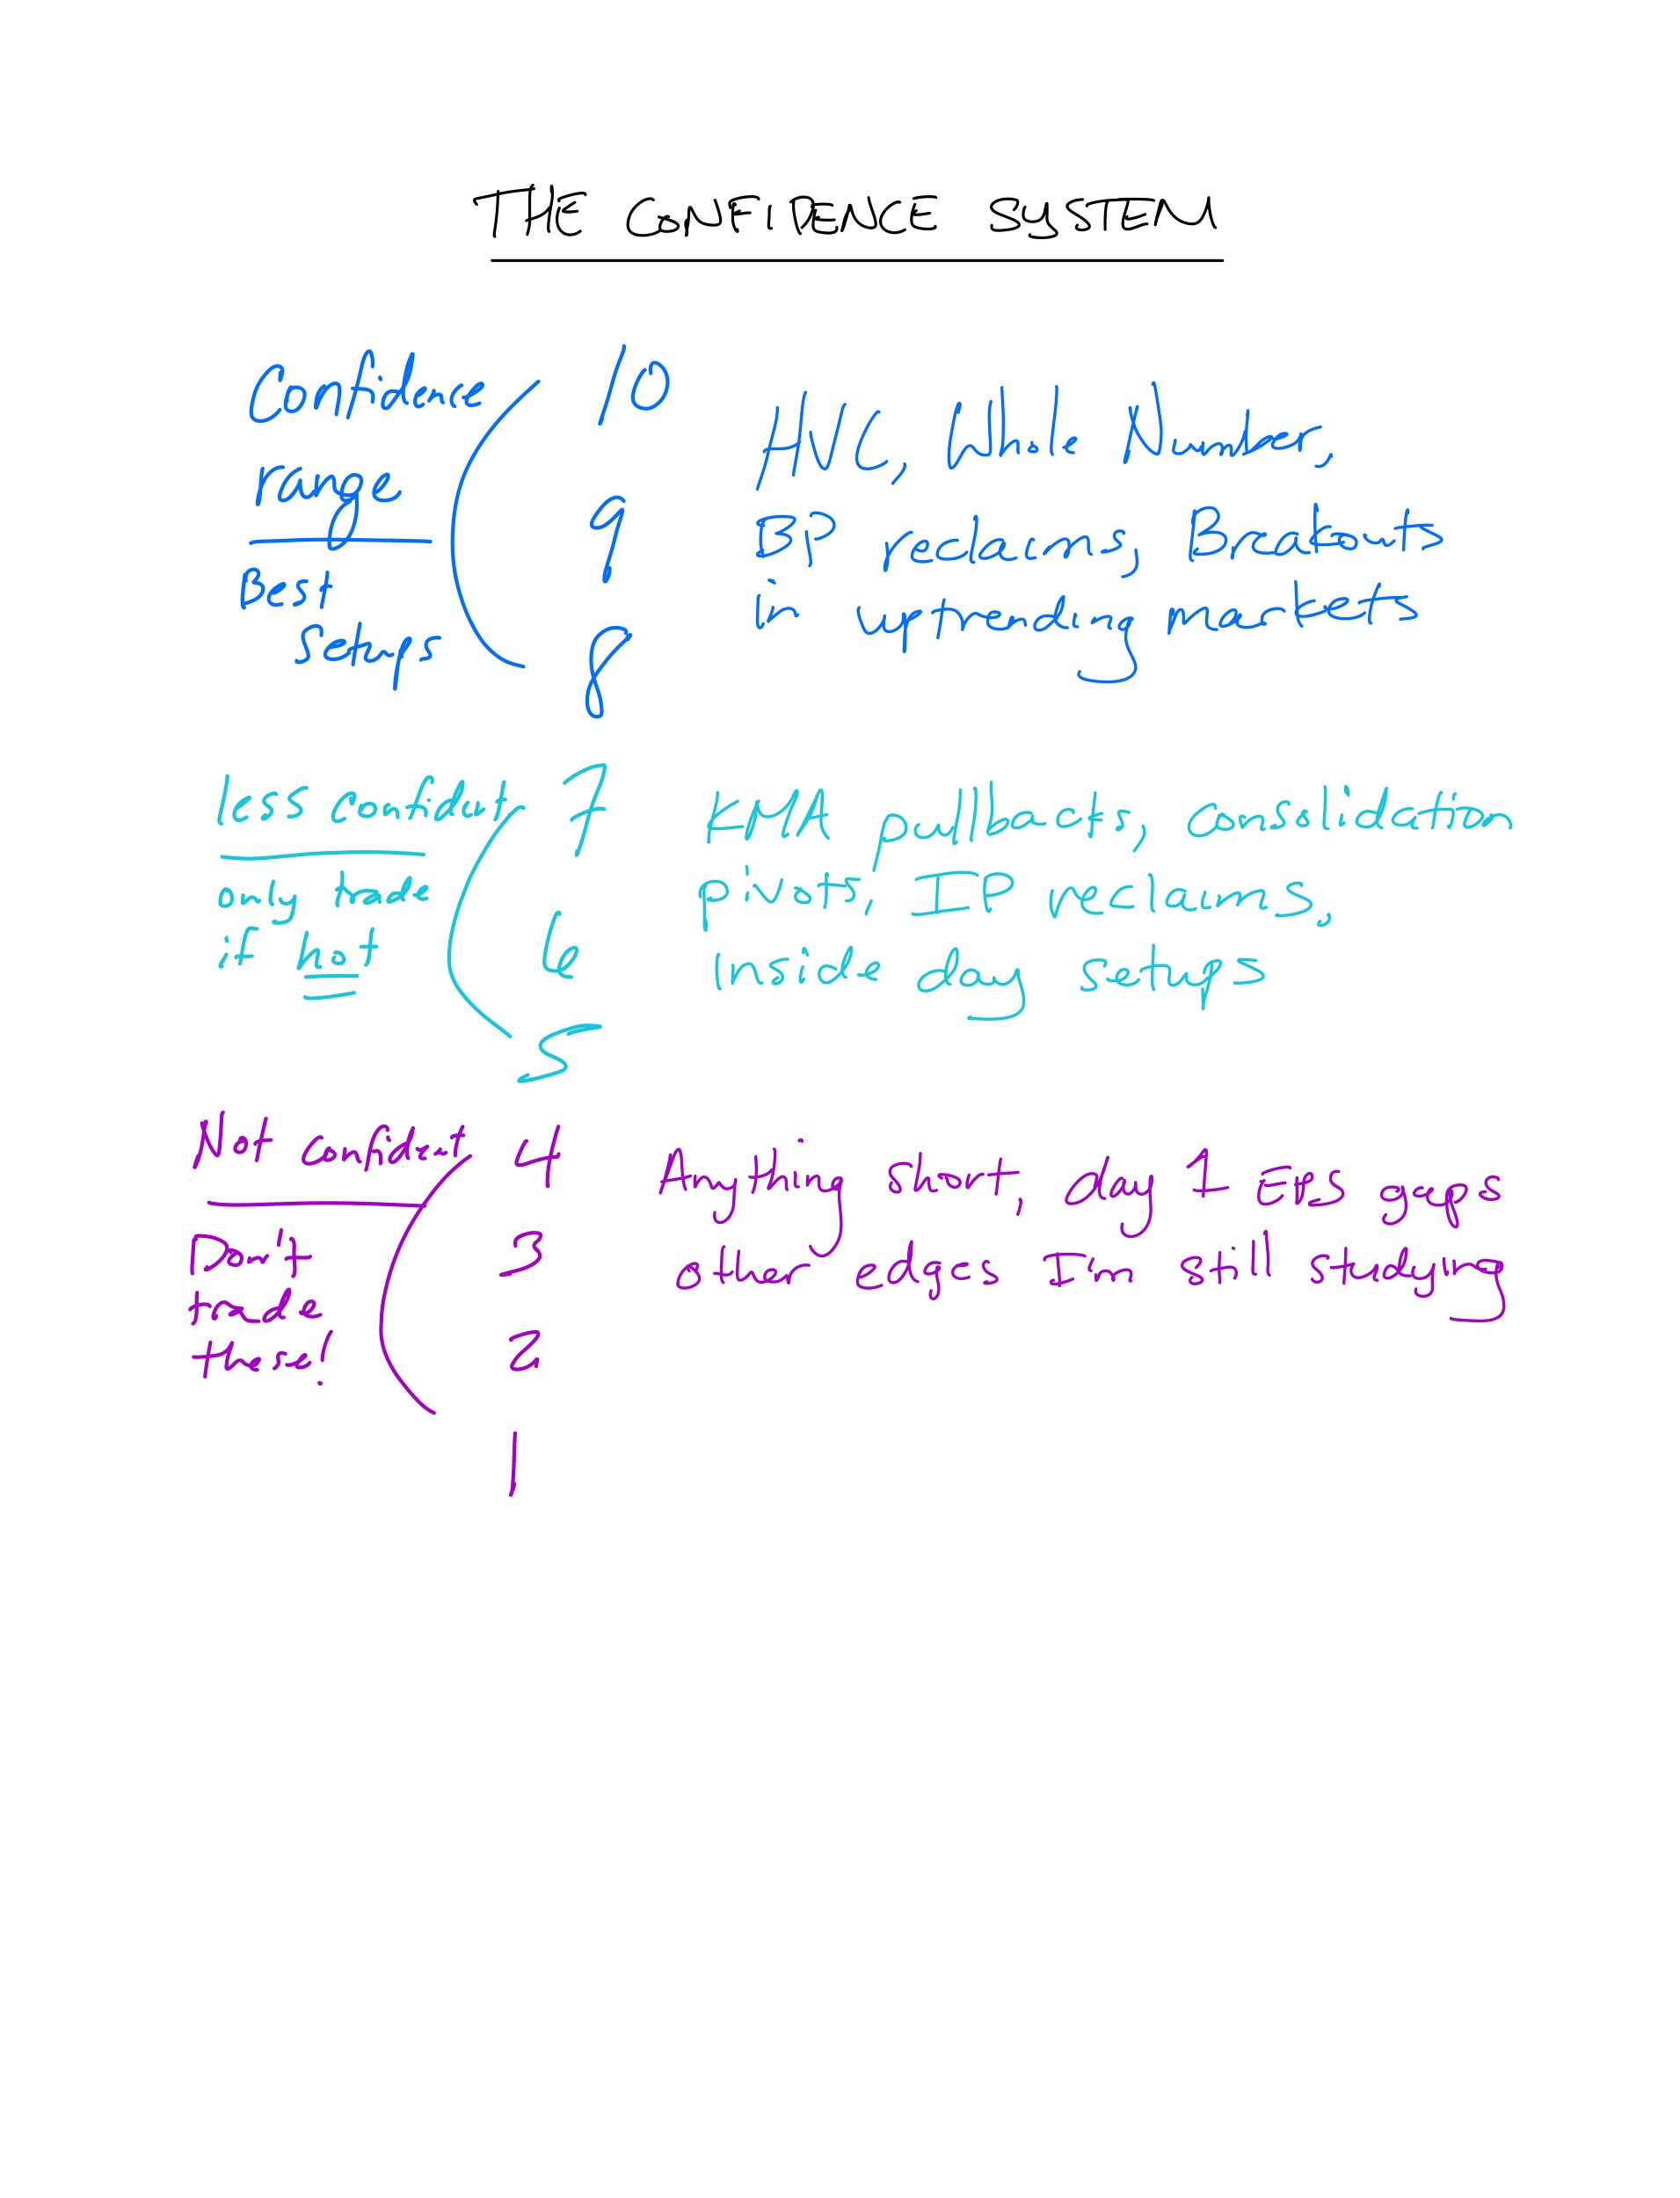 THE CONFIDENCE SYSTEM
Confidence
range
Best
Setups
10
9
8
HVC, Whole Number,
BP reclaims, Breakouts
in uptrending markets
less confident
only trade
if hot
7
6
5
KMA pullbacks, consolidation
pivots, IP reclaims,
inside day setups
Not confident
Don't
trade
these!
4
3
2
1
Anything short, day 1 EPS gaps
other edges I'm still studying